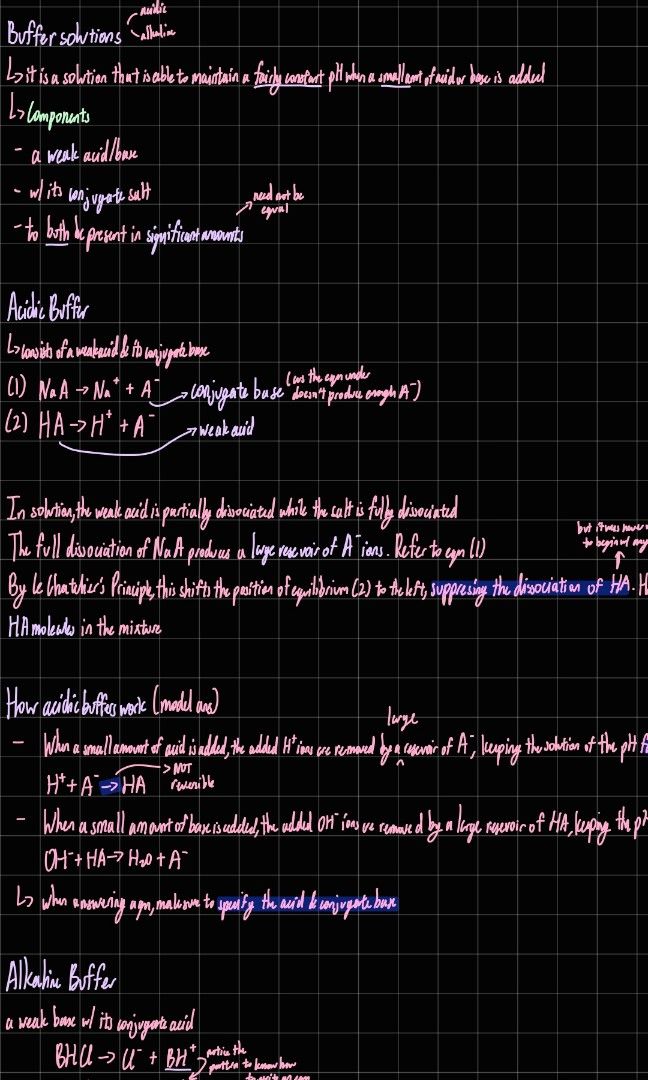 acidic
Buffer solutions
alkaline
↳ it is a solution that is able to maintain a fairly constant pH when a small amt of acid or base is added
↳ Components
- a weak acid/base
- w/ its conjugate salt
need not be equal
- to both be present in significant amounts
Acidic Buffer
↳ consists of a weak acid & its conjugate base
(1) NaA → Na⁺ + A⁻ → conjugate base (cos the eqn under doesn't produce enough A⁻)
(2) HA → H⁺ + A⁻ → weak acid
In solution, the weak acid is partially dissociated while the salt is fully dissociated
The full dissociation of NaA produces a large reservoir of A⁻ ions. Refer to eqn (1)
but it was never
to begin w/
By Le Chatelier's Principle, this shifts the position of equilibrium (2) to the left, suppresing the dissociation of HA.
HA molecules in the mixture
How acidic buffers work (model ans)
large
- When a small amount of acid is added, the added H⁺ ions are removed by a resevoir of A⁻, keeping the solution of the pH
H⁺ + A⁻ → HA → NOT reversible
- When a small amount of base is added, the added OH⁻ ions are removed by a large resevoir of HA, keeping the pH
OH⁻ + HA → H₂O + A⁻
↳ when answering a qn, make sure to specify the acid & conjugate base
Alkaline Buffer
a weak base w/ its conjugate acid
BHCl → Cl⁻ + BH⁺
notice the
pattern to know how